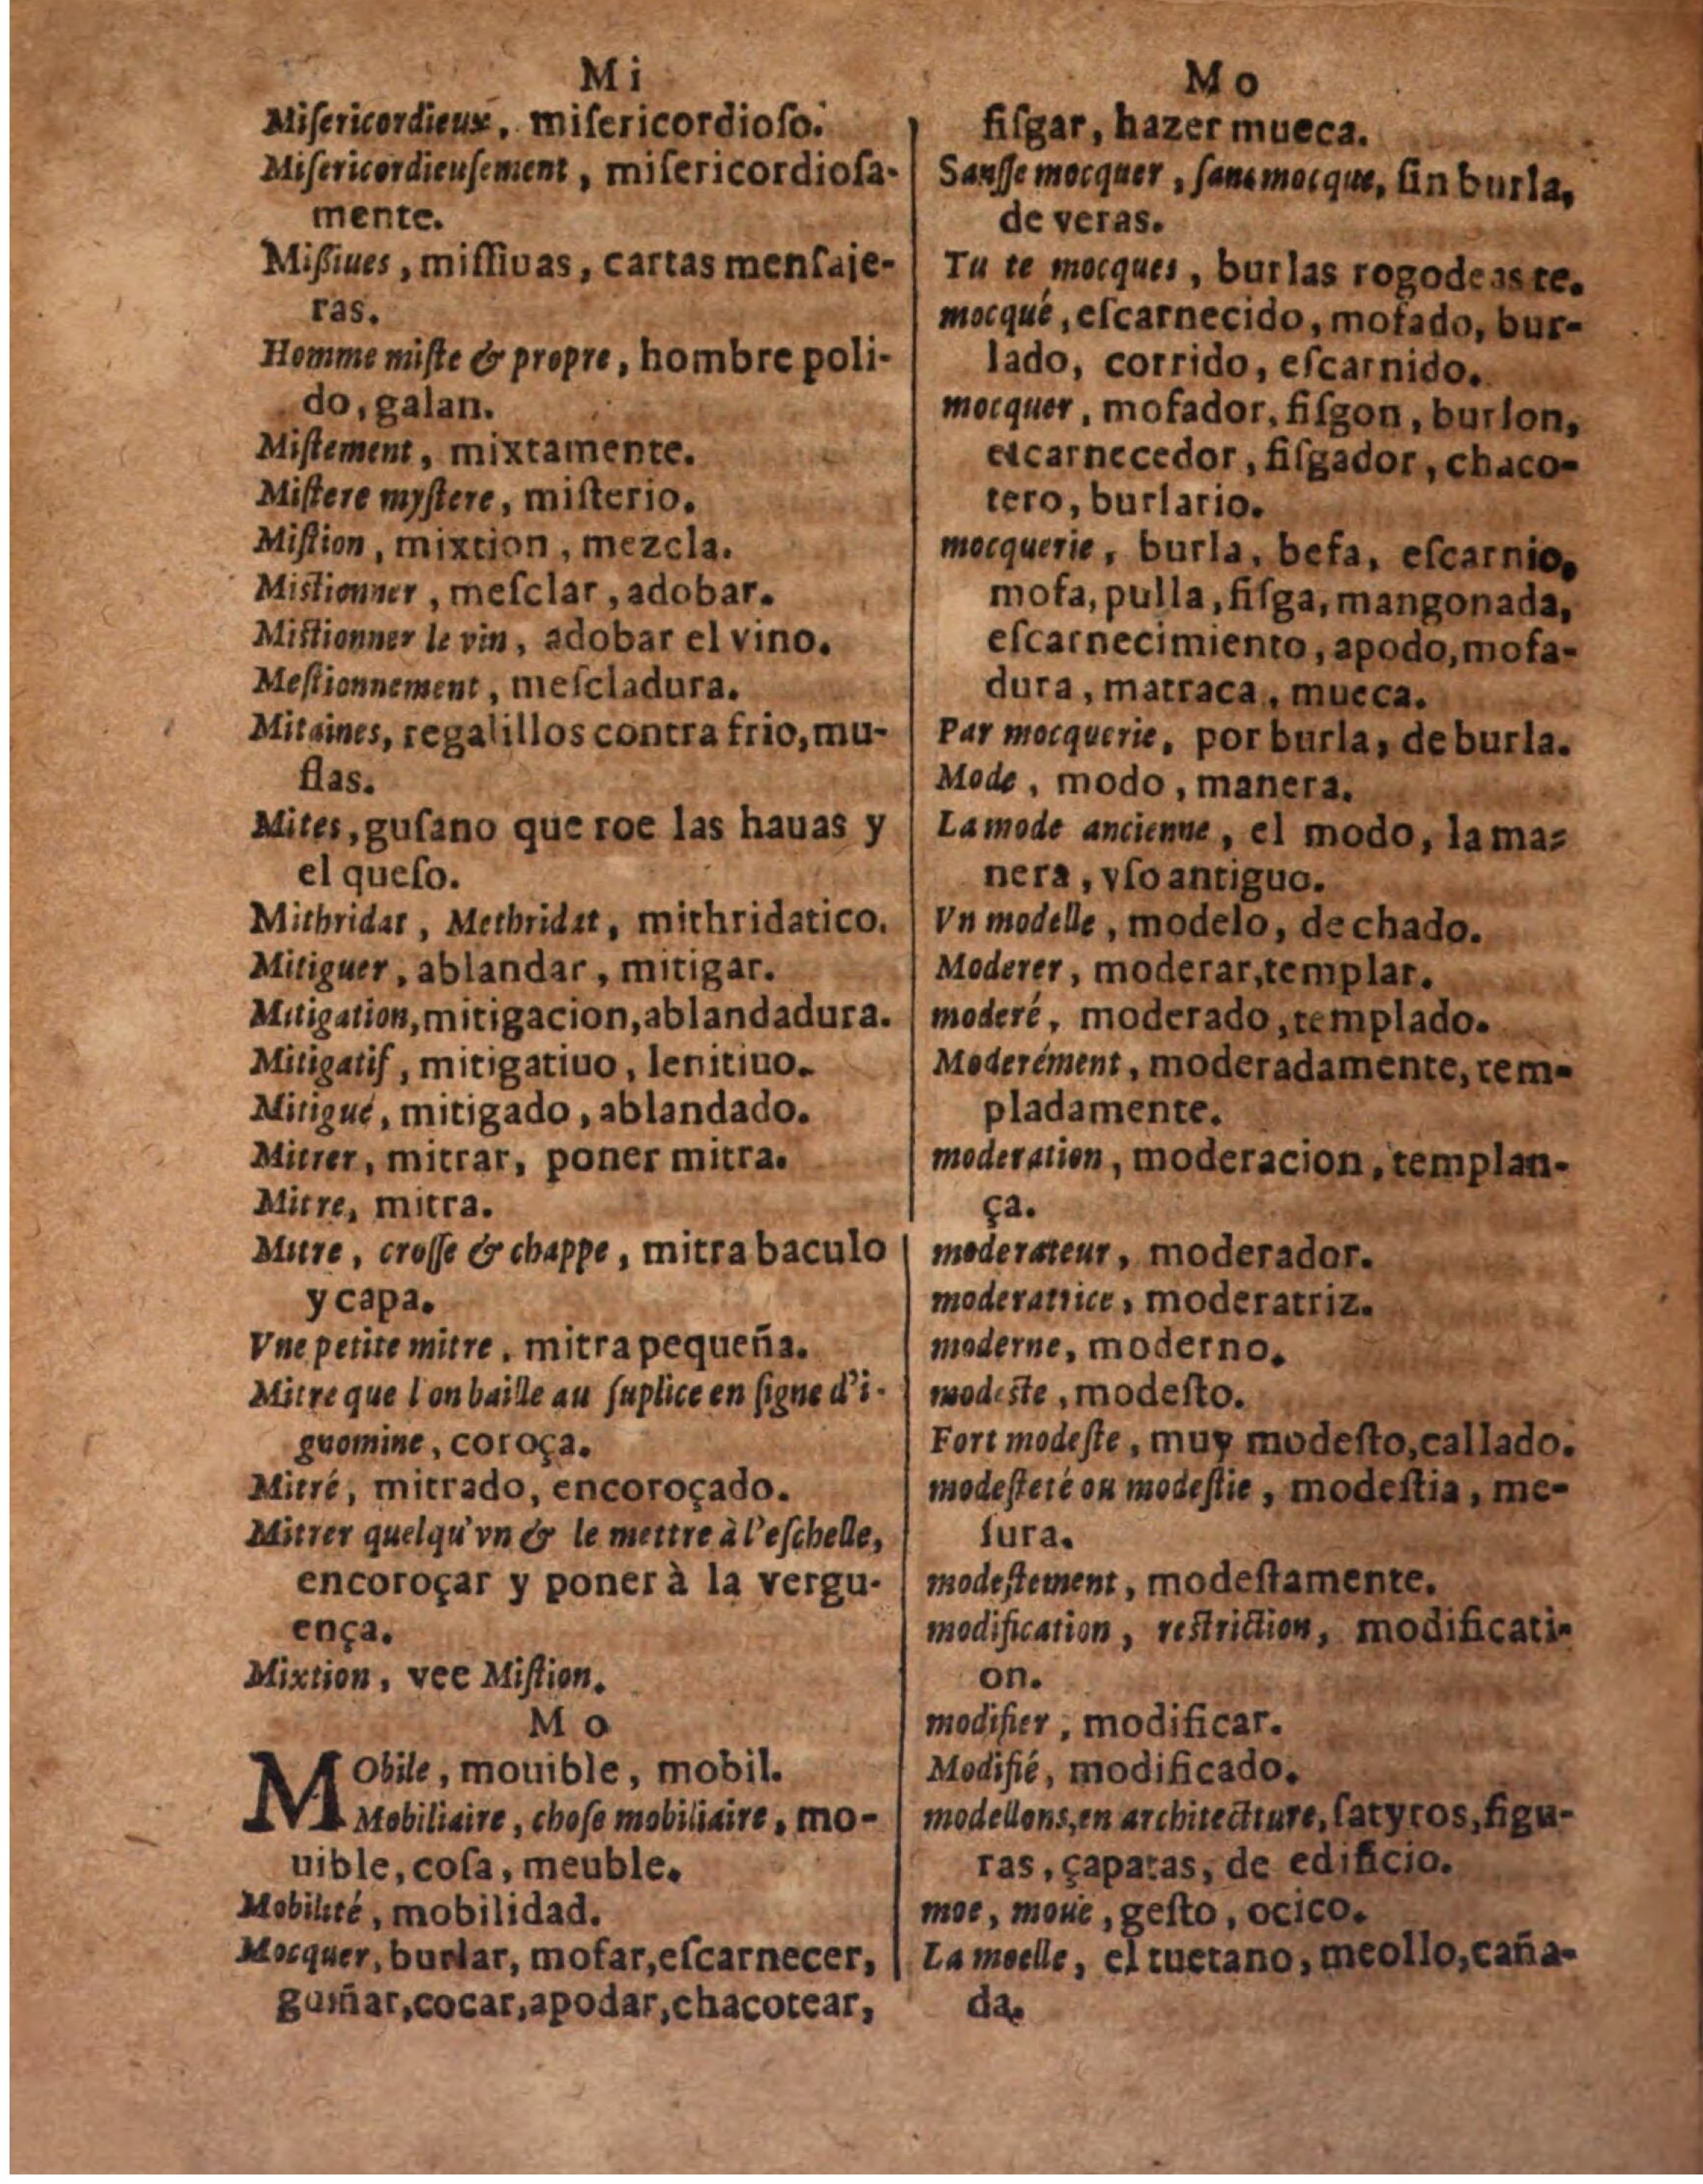 Mi
Miſericordieux, miſericordioſo.
Miſericordieuſement, miſericordioſa-
mente.
Mißiues, miſſiuas, cartas menſaje-
ras.
Homme miſte & propre, hombre poli-
do, galan.
Miſtement, mixtamente.
Miſtere myſtere, miſterio.
Miſtion, mixtion, mezcla.
Miſtionner, meſclar, adobar.
Miſtionner le vin, adobar el vino.
Meſtionnement, meſcladura.
Mitaines, regalillos contra frio, mu-
flas.
Mites, guſano que roe las hauas y
el queſo.
Mithridat, Methridat, mithridatico.
Mitiguer, ablandar, mitigar.
Mitigation, mitigacion, ablandadura.
Mitigatif, mitigatiuo, lenitiuo.
Mitigué, mitigado, ablandado.
Mitrer, mitrar, poner mitra.
Mitre, mitra.
Mitre, croſſe & chappe, mitra baculo
y capa.
Vne petite mitre, mitra pequeña.
Mitre que l'on baille au ſuplice en ſigne d'i-
gnomine, coroça.
Mitré, mitrado, encoroçado.
Mitrer quelqu'vn & le mettre à l'eſchelle,
encoroçar y poner à la vergu-
ença.
Mixtion, vee Miſtion.
Mo
MObile, mouible, mobil.
Mobiliaire, choſe mobiliaire, mo-
uible, coſa, meuble.
Mobilité, mobilidad.
Mocquer, burlar, mofar, eſcarnecer,
guiñar, cocar, apodar, chacotear,
Mo
fiſgar, hazer mueca.
Sanſſe mocquer, ſans mocque, ſin burla,
de veras.
Tu te mocques, burlas rogodeas te.
mocqué, eſcarnecido, mofado, bur-
lado, corrido, eſcarnido.
mocquer, mofador, fiſgon, burlon,
eſcarnecedor, fiſgador, chaco-
tero, burlario.
mocquerie, burla, befa, eſcarnio,
mofa, pulla, fiſga, mangonada,
eſcarnecimiento, apodo, mofa-
dura, matraca, mueca.
Par mocquerie, por burla, de burla.
Mode, modo, manera.
La mode ancienne, el modo, la ma-
nera, vſo antiguo.
Vn modelle, modelo, dechado.
Moderer, moderar, templar.
moderé, moderado, templado.
Moderément, moderadamente, tem-
pladamente.
moderation, moderacion, templan-
ça.
moderateur, moderador.
moderatrice, moderatriz.
moderne, moderno.
modeſte, modeſto.
Fort modeſte, muy modeſto, callado.
modeſteté ou modeſtie, modeſtia, me-
ſura.
modeſtement, modeſtamente.
modification, reſtriction, modificati-
on.
modifier, modificar.
Modifié, modificado.
modellons, en architecture, ſatyros, figu-
ras, çapatas, de edificio.
moe, moüe, geſto, ocico.
La moelle, el tuetano, meollo, caña-
da.